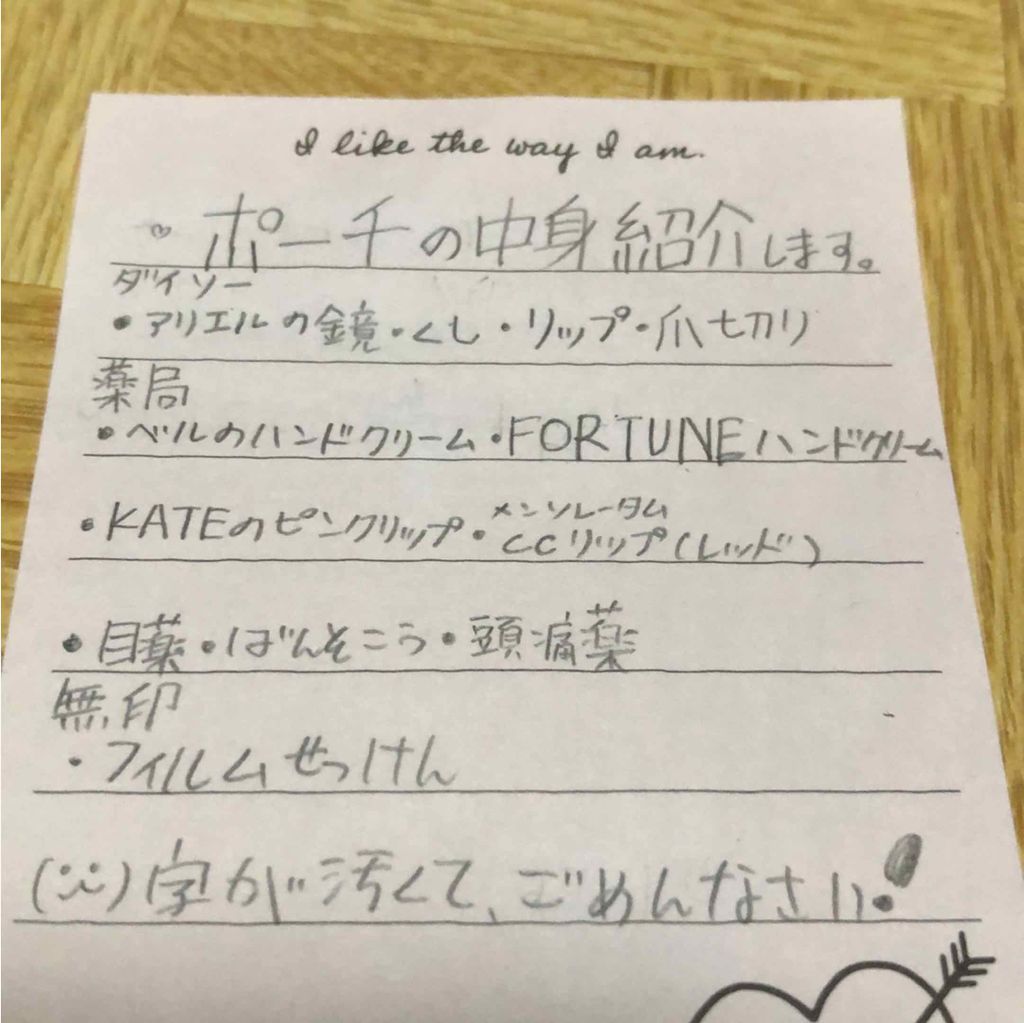 I like the way I am.
♡ ポーチの中身紹介します。
ダイソー
・アリエルの鏡・くし・リップ・爪切り
薬局
・ベルのハンドクリーム・FORTUNEハンドクリーム
・KATEのピンクリップ・メンソレータム CCリップ(レッド)
・目薬・ばんそこう・頭痛薬
無印
・フィルムせっけん
(¨̮)字が汚くて、ごめんなさい!